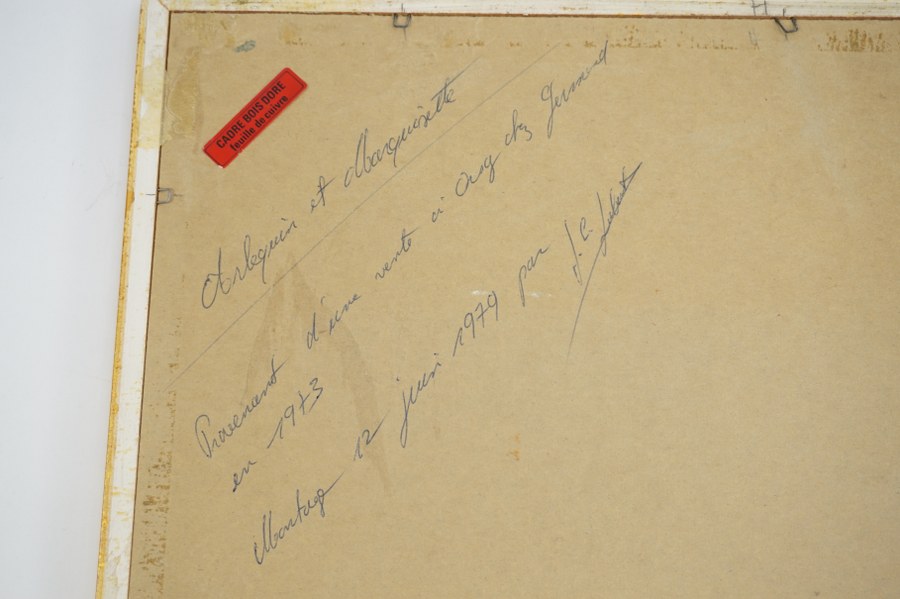 CADRE BOIS DORÉ
feuille de cuivre
Arlequin et Marquisette
Provenant d'une vente à chez
en 1973
Montage 12 juin 1979 par J. C.